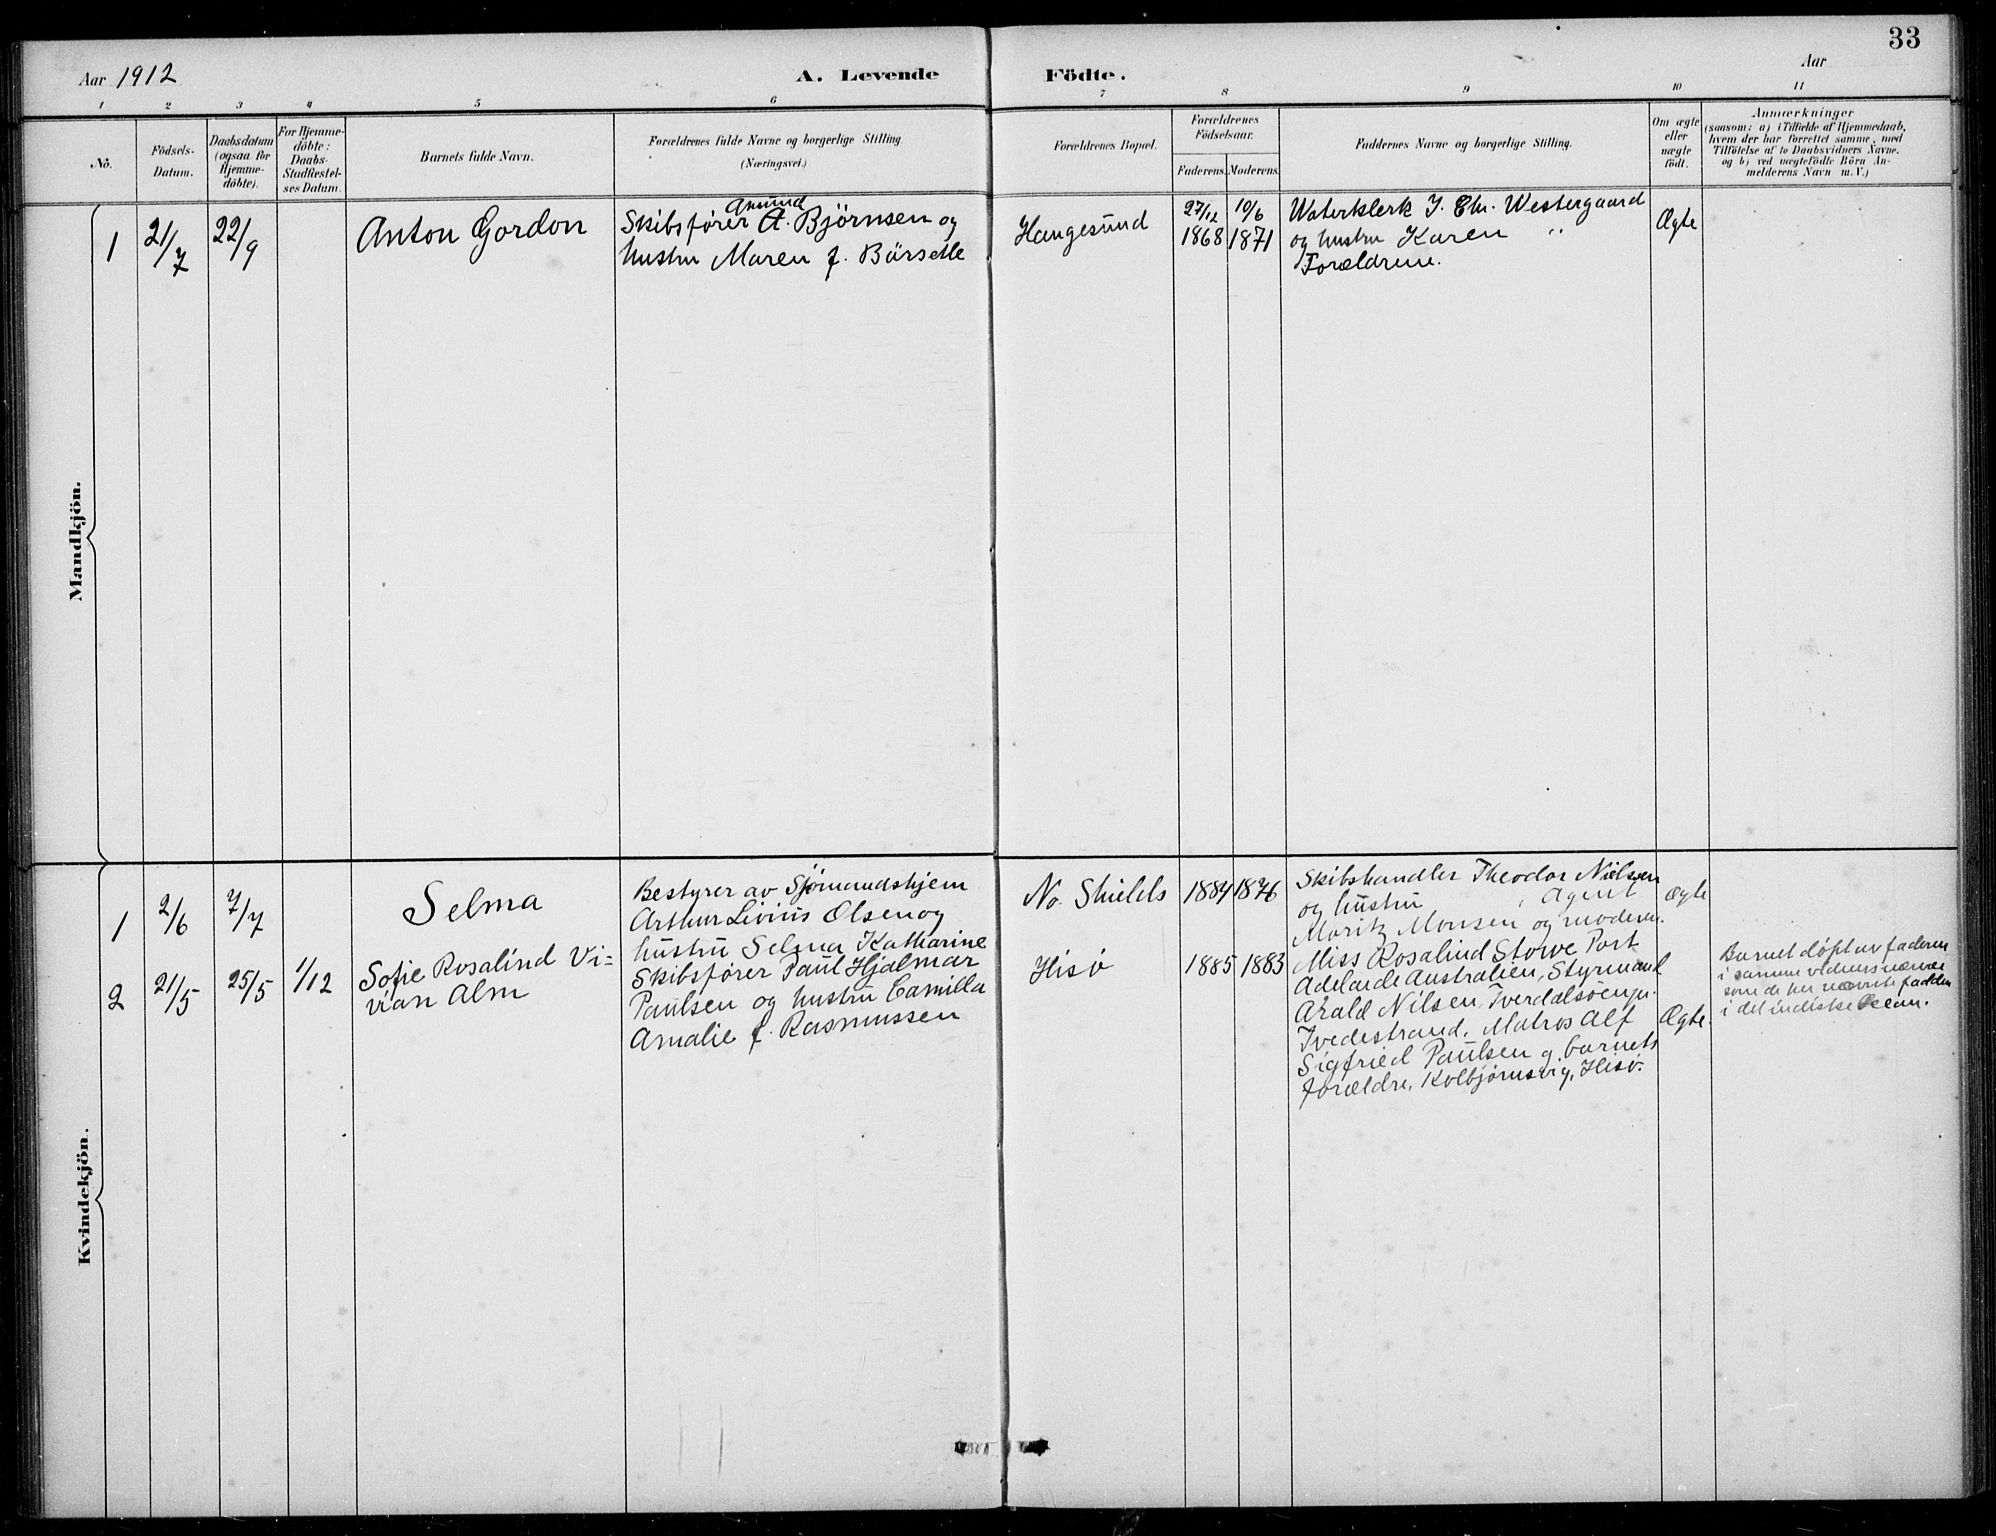 33
Aar 1912
A. Levende
Födte.
Aar
1 2 3 4 5 6 7 8 9 10 11
No.
Födsels-
Datum.
Daabsdatum
(ogsaa for
Hjemme-
döbte).
For Hjemme-
döbte:
Daabs-
Stadfæstel-
ses Datum.
Barnets fulde Navn.
Forældrenes fulde Navne og borgerlige Stilling
(Næringsvei.)
Forældrenes Bopæl.
Forældrenes
Födselsaar.
Faderens. Moderens.
Faddernes Navne og borgerlige Stilling.
Om ægte
eller
uægte
födt.
Anmærkninger
(saasom: a) i Tilfælde af Hjemmedaab,
hvem der har forrettet samme, med
Tilföielse af to Daabsvidners Navne.
og b) ved uægtefödte Börn An-
melderens Navn m. V.)
Mandkjön.
1
21/7
22/9
Anton Gordon
Amund
Skibsfører A. Bjørnsen og
hustru Maren f. Børsetle
Haugesund
27/12
1868
10/6
1871
Waterklerk J. Chr. Westergaard
og hustru Karen "
Forældrene.
Ægte
Kvindekjön.
1
2/6
7/7
Selma
Bestyrer av Sjømandshjem
Arthur Livius Olsen og
hustru Selma Katharine
No. Shields
1884
1876
Skibshandler Theodor Nielsen
og hustru , Agent
Moritz Monsen og moderen.
Ægte
2
21/5
25/5
1/12
Sofie Rosalind Vi-
vian Alm
Skibsfører Paul Hjalmar
Paulsen og hustru Camilla
Amalie f. Rasmussen
Hisø
1885
1883
Miss Rosalind Stowe Port
Adelaide Australien, Styrmand
Arald Nilsen, Tverdalsøen pr.
Tvedestrand, Matros Alf
Sigfried Paulsen g. barnets
forældre, Kolbjørnsvig, Hisø.
Ægte.
Barnet døpt av faderen
i samme vidners nærvær
som de her nævnte faddere
i det indiske Ocean.